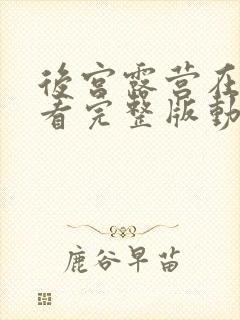 後宮露营在
看完整版動
鹿谷早苗